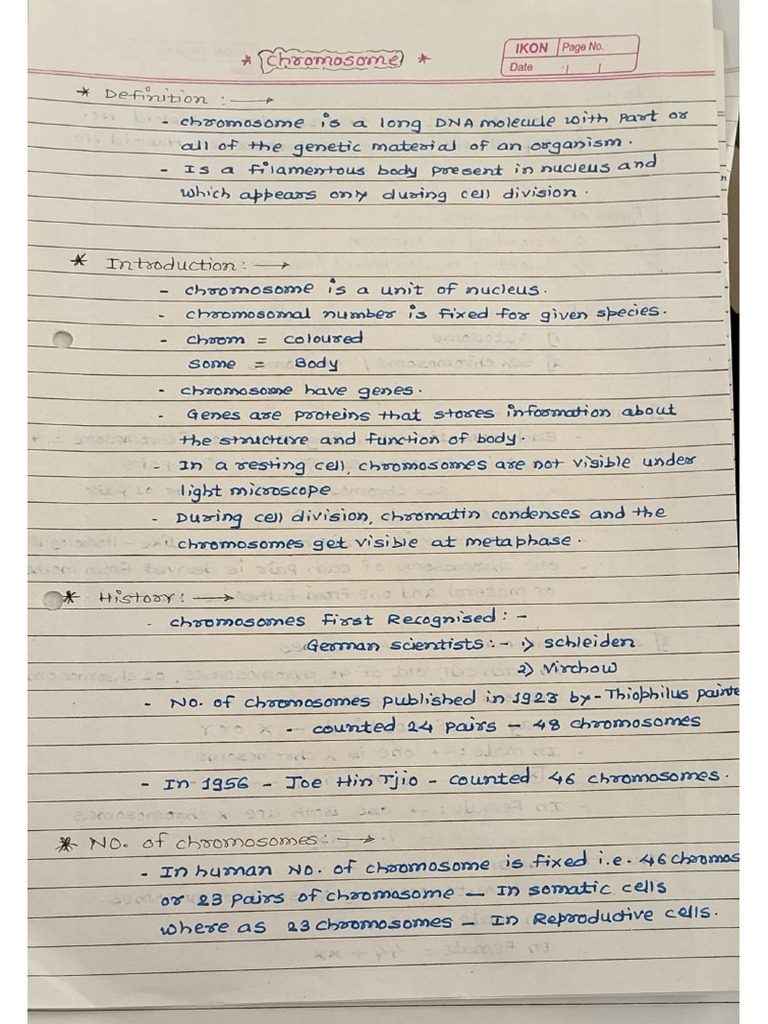 * Chromosome *
IKON Page No.
Date
* Definition :→
- chromosome is a long DNA molecule with part or
all of the genetic material of an organism.
- Is a filamentous body present in nucleus and
which appears only during cell division.
* Introduction :→
- chromosome is a unit of nucleus.
- chromosomal number is fixed for given species.
- chrom = coloured
some = Body
- chromosome have genes.
- Genes are proteins that stores information about
the structure and function of body.
- In a resting cell, chromosomes are not visible under
light microscope
- During cell division, chromatin condenses and the
chromosomes get visible at metaphase.
* History :→
- chromosomes first Recognised :-
German scientists :- 1) schleiden
2) Virchow
- No. of chromosomes published in 1923 by - Thiophilus painte
- counted 24 pairs - 48 chromosomes
- In 1956 - Joe Hin Tjio - counted 46 chromosomes.
* No. of chromosomes :→
- In human No. of chromosome is fixed i.e. 46 chromos
or 23 pairs of chromosome - In somatic cells
where as 23 chromosomes - In Reproductive cells.